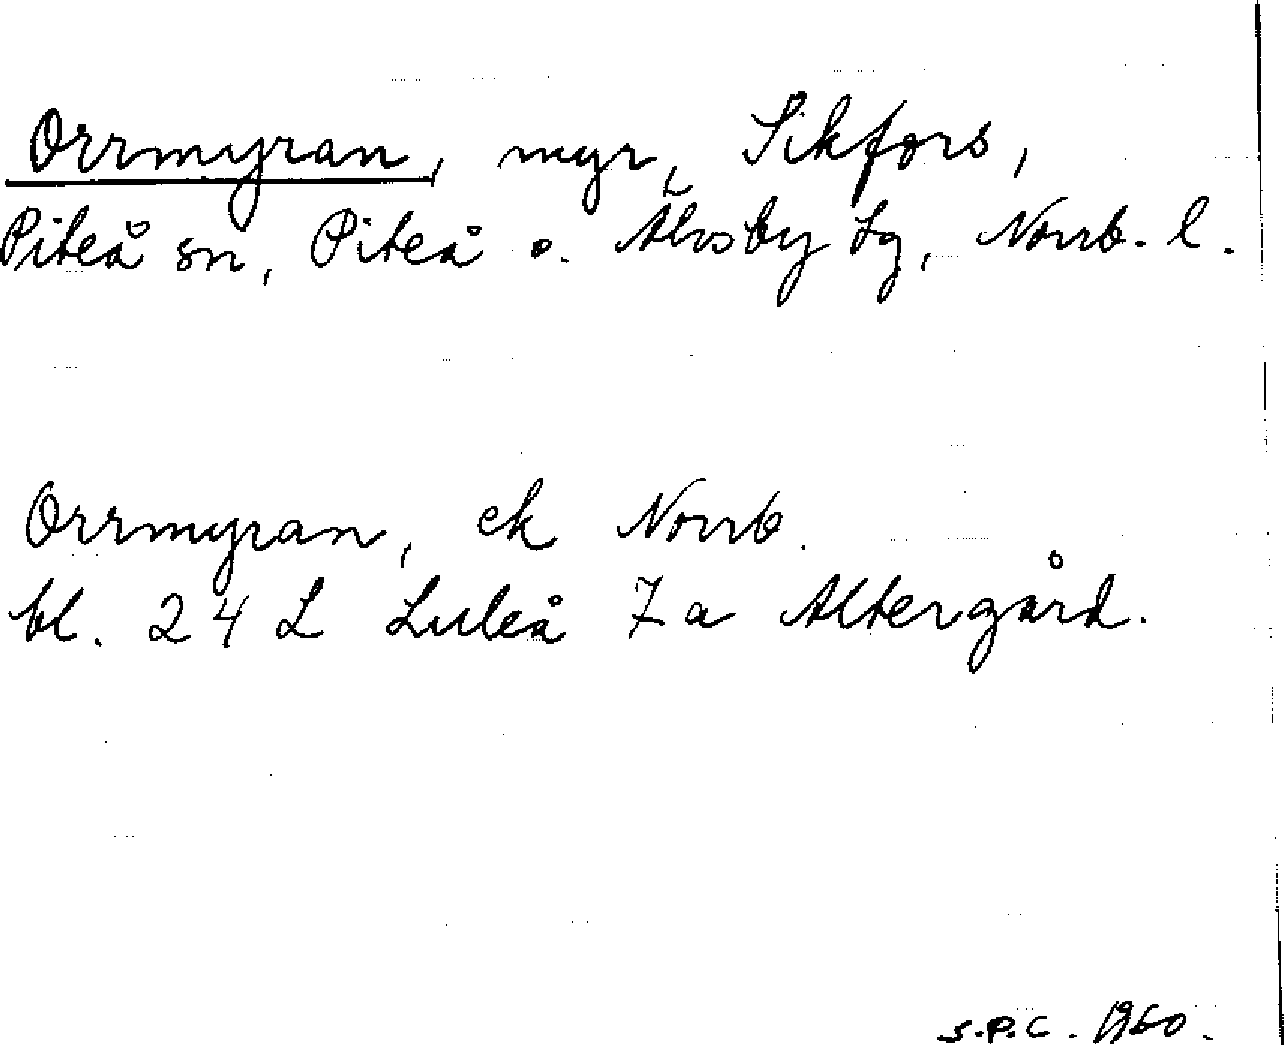 Orrmyran, myr, Sikfors,
Piteå sn, Piteå o. Älvsby tg, Norrb. l.
Orrmyran, ek Norrb.
bl. 24 L Luleå 7a Altergård.
S.P.C. 1960.